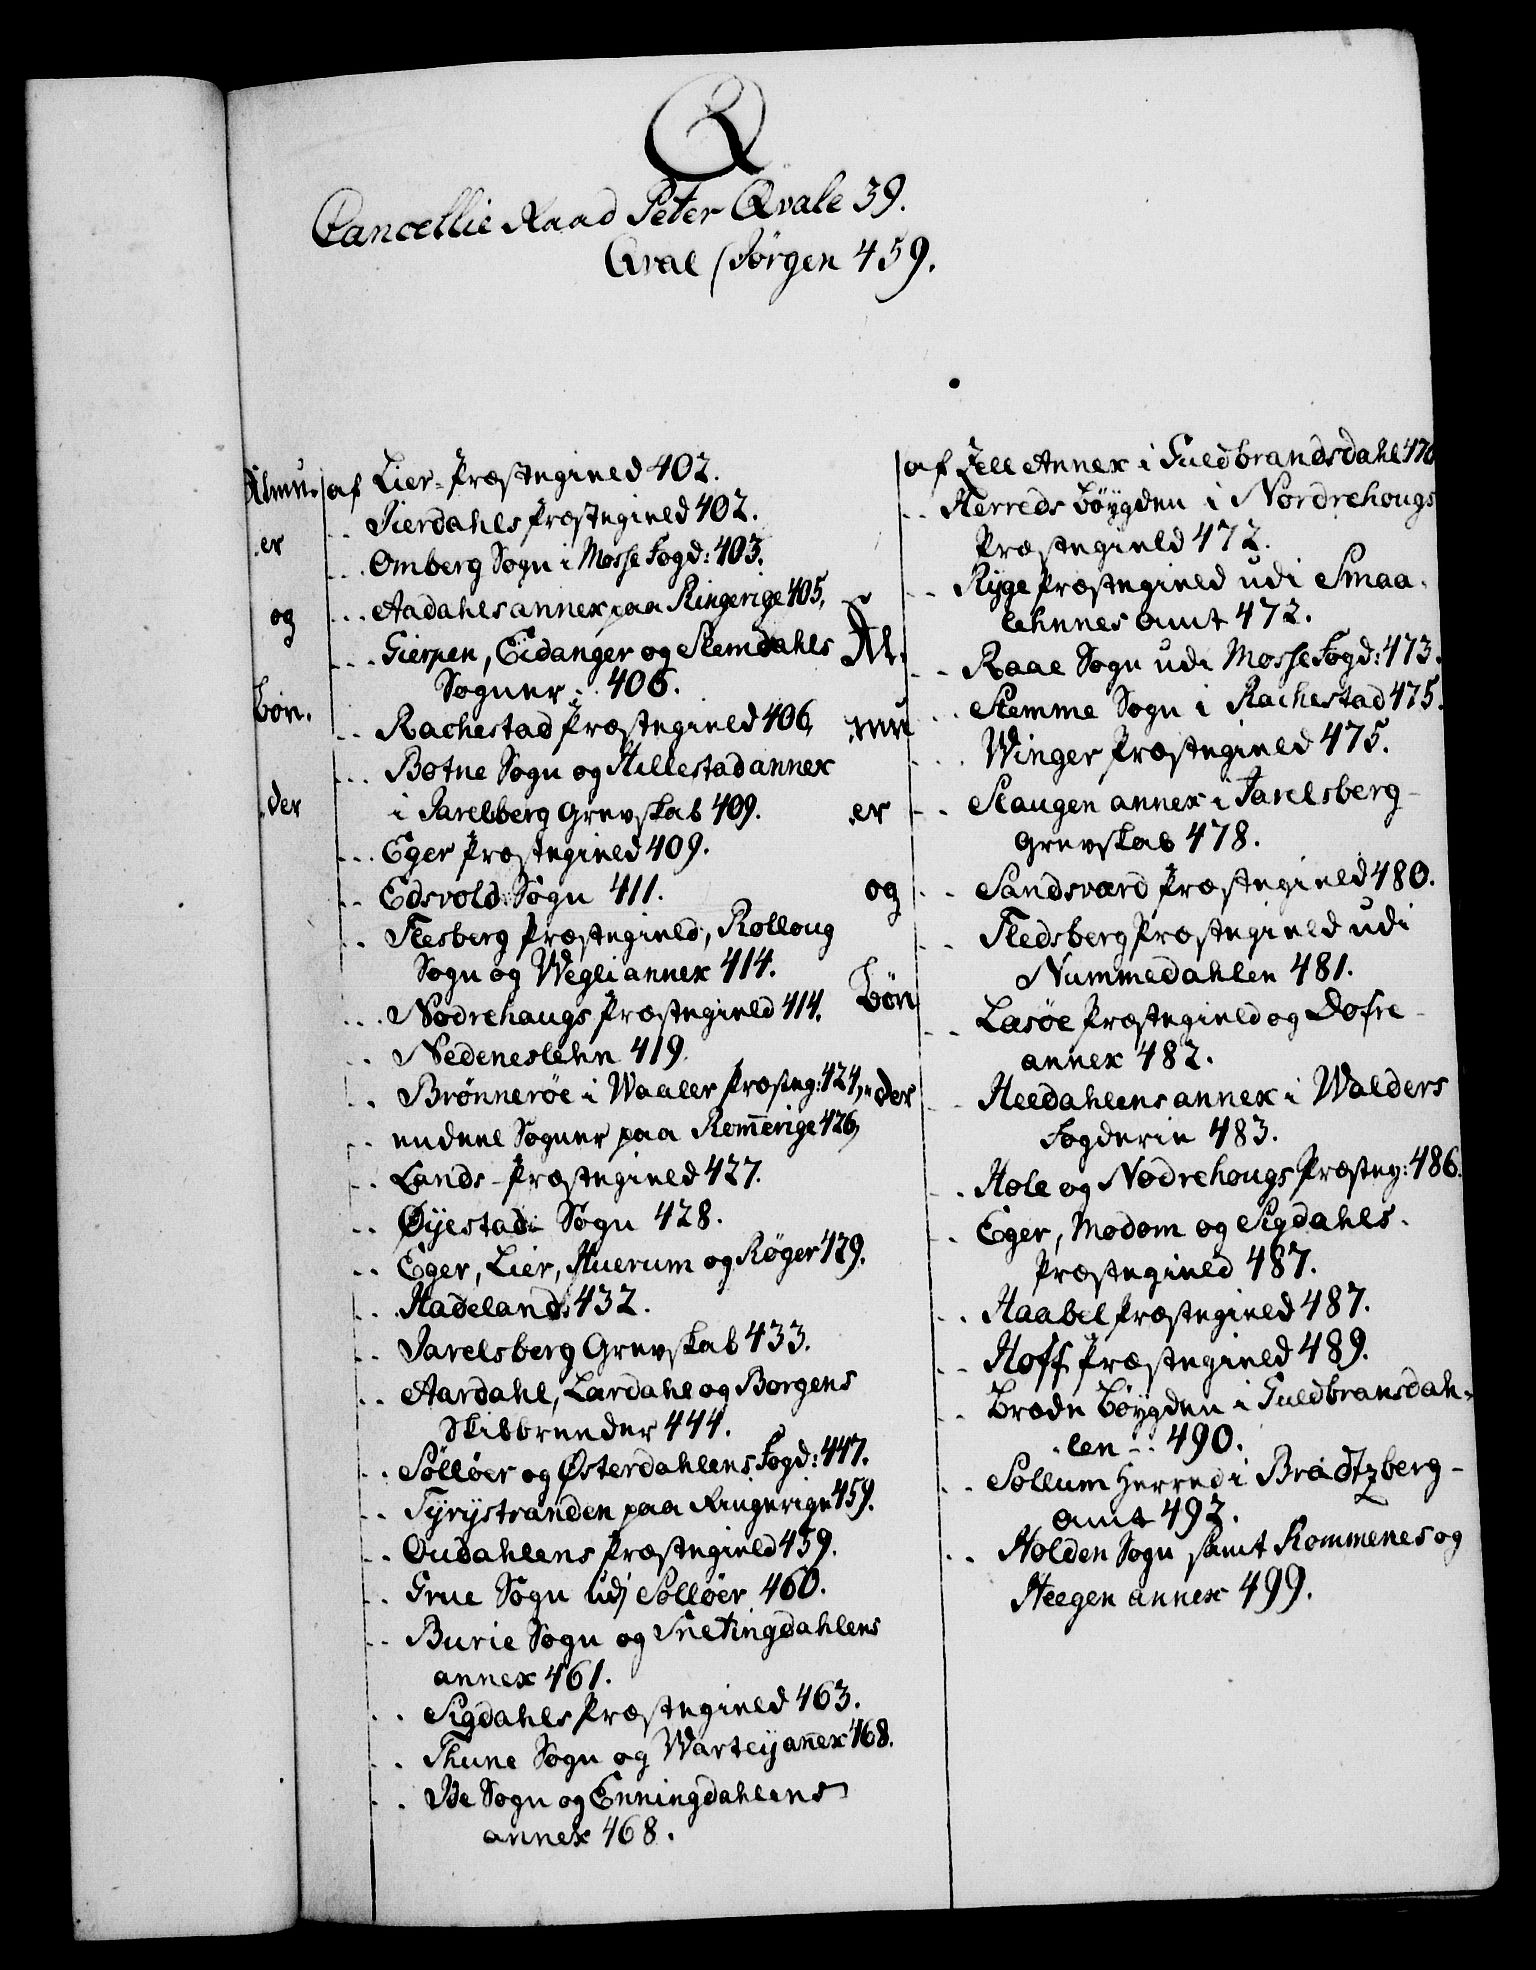 Q
Cancellie Raad Peter Qvale 39.
Qval Jörgen 459.
Almu.
er
og
Bön.
der
af Lier-Præstegield 402.
Tierdahls Præstegield 402.
Omberg Sogn i Mosse Fogd: 403.
Aadahls annex paa Ringerige 405.
Gierpen, Eidanger og Slemdahls
Sogner 406.
Rachestad Præstegield 406
Botne Sogn og Hillestad annex
i Jarelsberg Grevskab 409.
Eger Præstegield 409.
Edsvold Sogn 411.
Flesberg Præstegield, Rolloug
Sogn og Wegli annex 414.
Nodrehaugs Præstegield 414.
Nedeneslehn 419.
Brönneröe i Waaler Præsteg: 424,
endeel Sogner paa Rom̅erige 426,
Lands-Præstegield 427.
Øyestad Sogn 428.
Eger, Lier, Huerum og Röger 429.
Hadeland 432.
Jarelsberg Grevskab 433.
Aardahl, Lardahl og Borgens
Skibbreeder 444.
Söllöer og Østerdahlens Fogd: 447.
Tyrystranden paa Ringerige 459.
Oudahlens Præstegield 459.
Grue Sogn udj Sollöer 460.
Burie Sogn og Snetingdahlens
annex 461.
Sigdahls Præstegield 463.
Thune Sogn og Warteij an̅ex 468.
Ide Sogn og Enningdahlens
annex 468.
Al.
mu
er
og
Bön
der
af Zell Annex i Guldbrandsdahl 470
Herreds Böygden i Nordrehougs
Præstegield 472.
Ryge Præstegield udi Smaa-
lehnnes Amt 472.
Raae Sogn udi Mosse Fogd: 473.
Slemme Sogn i Rachestad 475.
Winger Præstegield 475.
Slaugen annex i Jarelsberg
Grevskab 478.
Sandsværd Præstegield 480.
Fledsberg Præstegield udi
Nummedahlen 481.
Lasöe Præstegield og Dofre
annex 482.
Heedahlens annex i Walders
Fogderie 483.
Hole og Nodrehougs Præsteg: 486.
Eger, Modom og Sigdahls
Præstegield 487.
Haabel Præstegield 487.
Hoff Præstegield 489.
Brede Böygden i Guldbransdah-
len 490.
Sollum Herred i Bradtzberg
Amt 492.
Holden Sogn samt Rommenes og
Heegen annex 499.